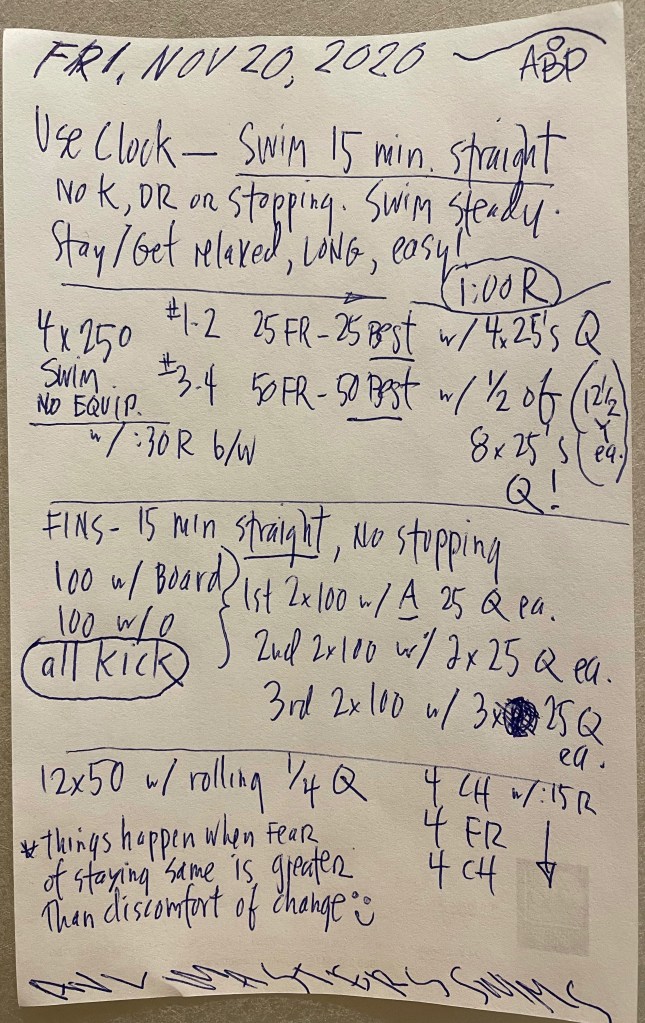 FRI, NOV 20, 2020 ABP
Use Clock — Swim 15 min. straight
No K, DR or stopping. Swim steady.
Stay/Get relaxed, LONG, easy!
1:00 R
4 x 250 #1-2 25 FR - 25 Best w/ 4x25's Q
SWIM #3-4 50 FR - 50 Best w/ 1/2 of (12 1/2 Y ea.)
NO EQUIP. 8 x 25's
w/ :30 R b/w Q!
FINS - 15 min straight, No stopping
100 w/ Board } 1st 2x100 w/ A 25 Q ea.
100 w/o 2nd 2x100 w/ 2x25 Q ea.
all kick 3rd 2x100 w/ 3x 25 Q ea.
12x50 w/ rolling 1/4 Q 4 CH w/ :15 R
4 FR
4 CH
* things happen when Fear
of staying same is greater
Than discomfort of change
MASTERS SWIMS